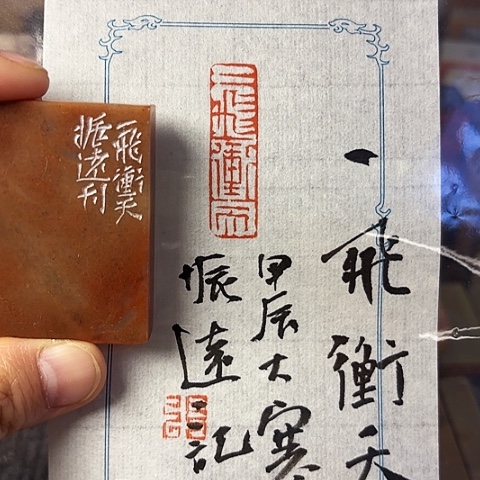 一飛衝天
振遠刊
一飛衝天
一飛衝天
甲辰大寒
振遠記